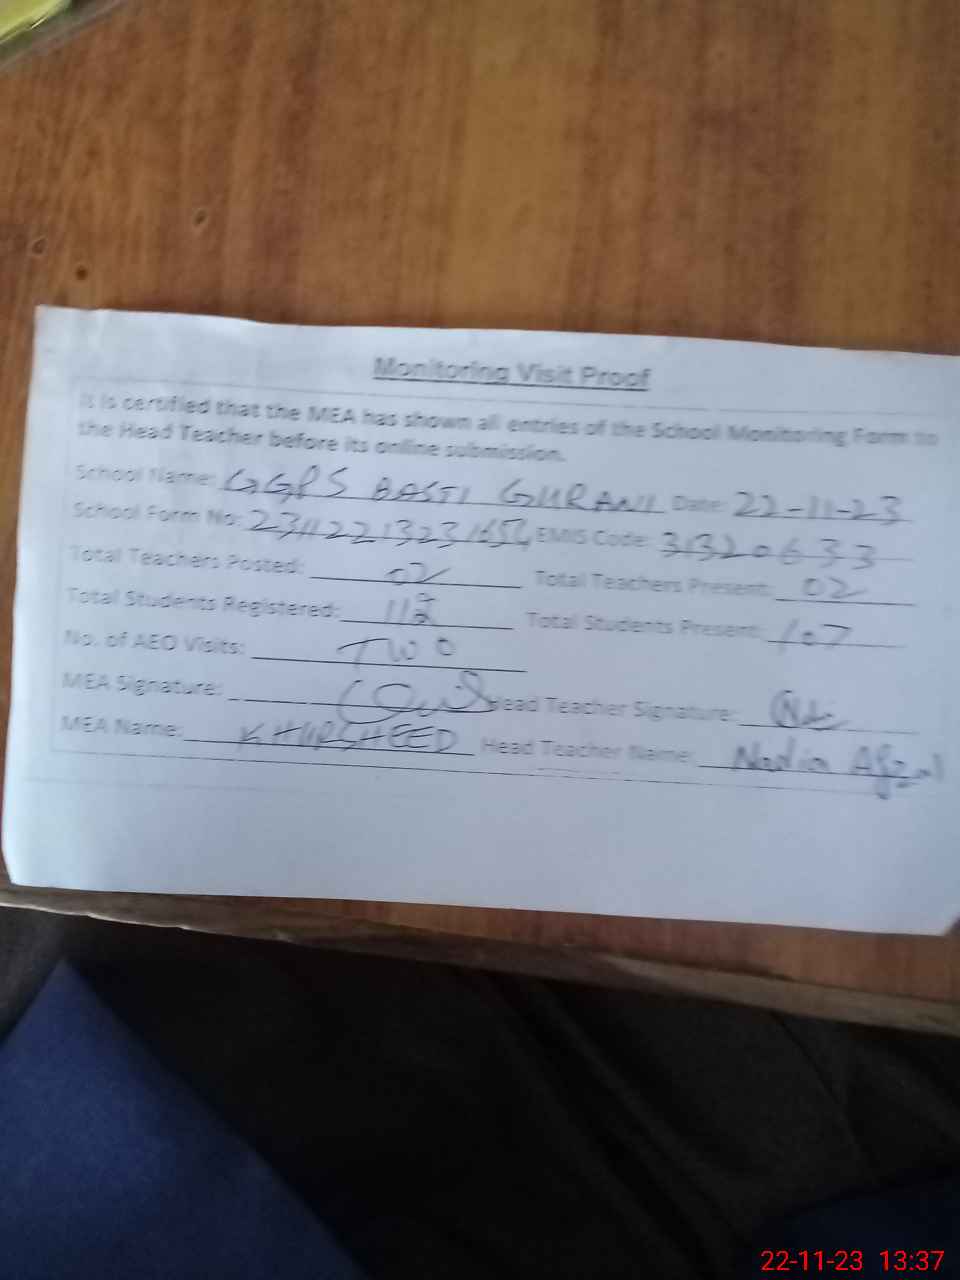 Monitoring Visit Proof
It is certified that the MEA has shown all entries of the School Monitoring Form to
the Head Teacher before its online submission.
School Name: GGPS BASTI GHRANI Date: 22-11-23
School Form No: EMIS Code: 31320633
Total Teachers Posted: 02 Total Teachers Present: 02
Total Students Registered: Total Students Present: 107
No. of AEO Visits: TWO
MEA Signature: Head Teacher Signature:
MEA Name: KHURSHEED Head Teacher Name: Nadia Afzal
22-11-23 13:37